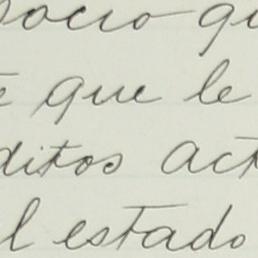 socio qu
e que le
ditos act
l estado